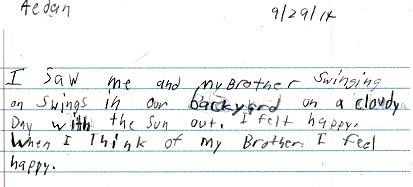 Aedan
9/29/14
I Saw me and my Brother Swinging
on Swings in our backyard on a cloudy
Day with the Sun out. I felt happy.
When I Think of my Brother I feel
happy.